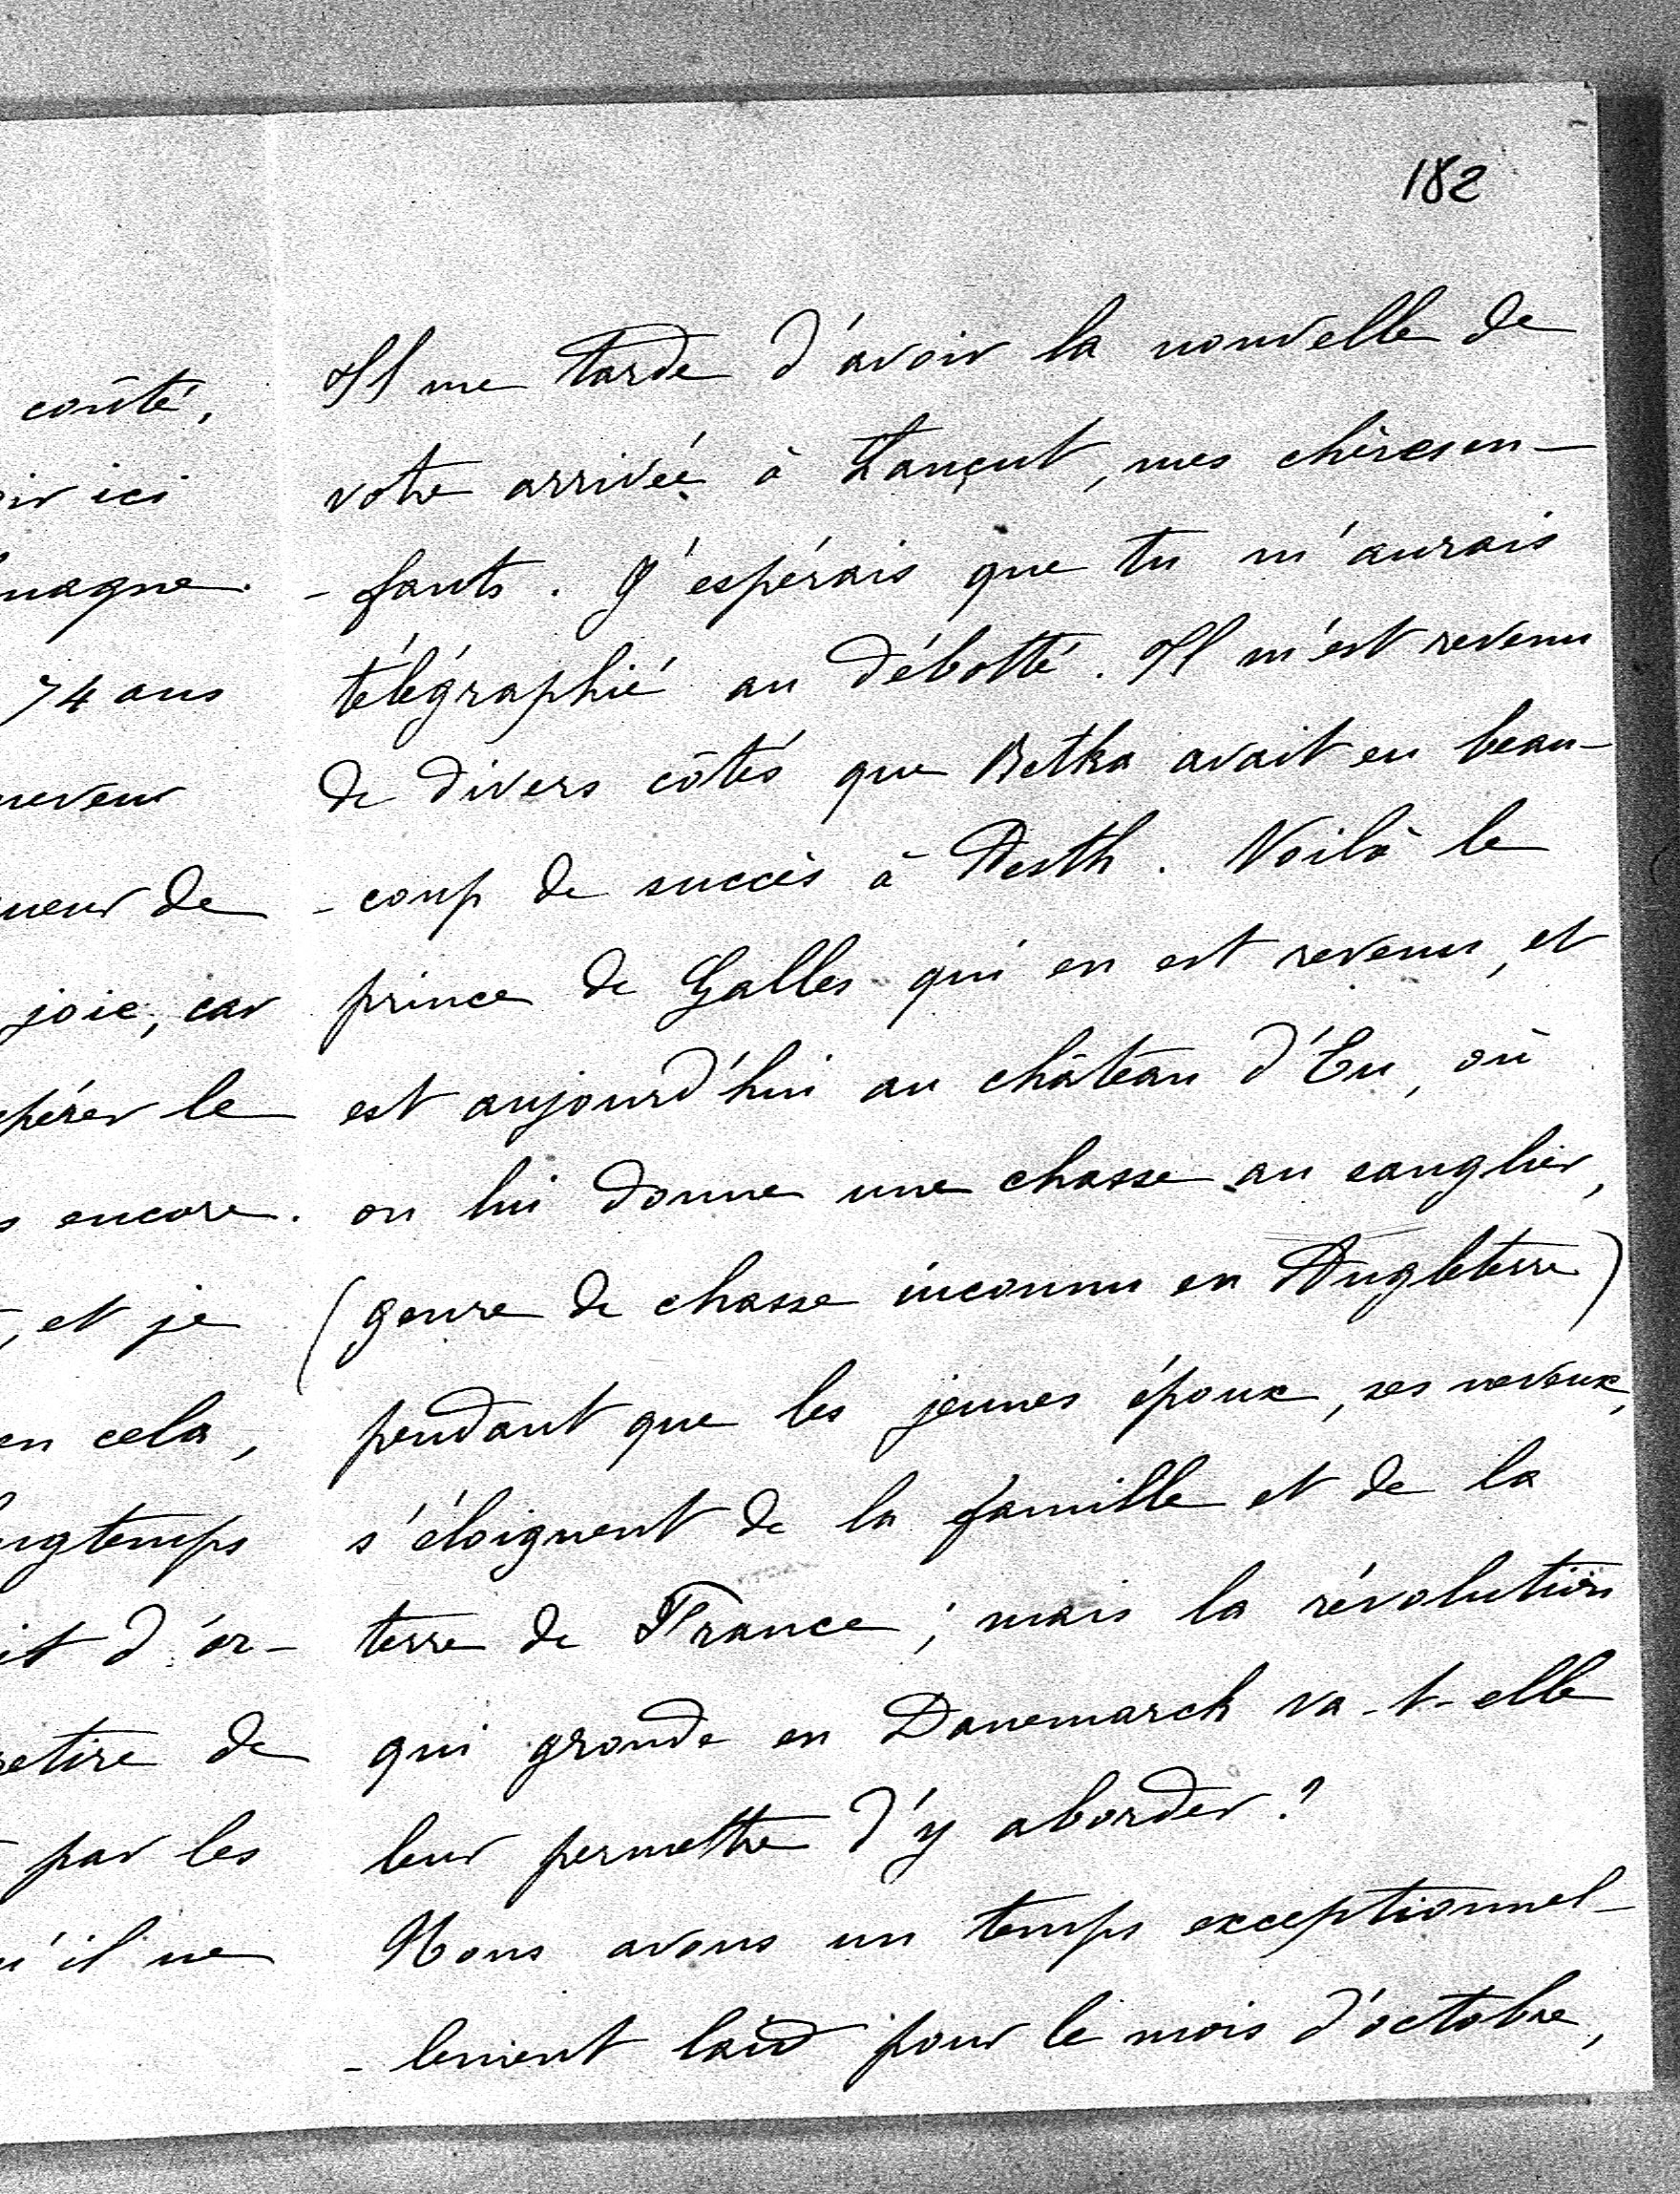 182
coûté,
ir ici
magne.
74 ans
neveu
ueur de
joie, car
pérer le
s encore.
, et je
en cela,
ngtemps
it d'or-
retire de
par les
u'il ne
Il me tarde d'avoir la nouvelle de
votre arrivée à Łançut, mes chères en-
-fants. J'espérais que tu m'aurais
télégraphié au débotté. Il m'est revenu
de divers côtés que Betka avait eu beau-
-coup de succès à Pesth. Voilà le
prince de Galles qui en est revenu, et
est aujourd'hui au château d'Eu, où
on lui donne une chasse au sanglier,
(genre de chasse inconnu en Angleterre)
pendant que les jeunes époux, ses neveux,
s'éloignent de la famille et de la
terre de France; mais la révolution
qui gronde en Danemarck va-t-elle
leur permettre d'y aborder?
Nous avons un temps exceptionnel-
-lement laid pour le mois d'octobre,